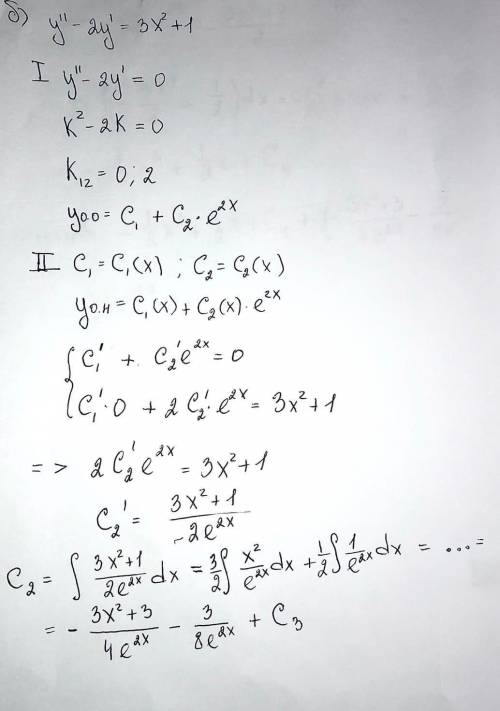 б) y'' - 2y' = 3x² + 1
I y'' - 2y' = 0
K² - 2K = 0
K₁₂ = 0; 2
yо.о = C₁ + C₂ · e^{2x}
II C₁ = C₁(x) ; C₂ = C₂(x)
yо.н = C₁(x) + C₂(x) · e^{2x}
{ C₁' + C₂' e^{2x} = 0
C₁' · 0 + 2 C₂' · e^{2x} = 3x² + 1
=> 2 C₂' e^{2x} = 3x² + 1
C₂' = \frac{3x² + 1}{-2e^{2x}}
C₂ = ∫ \frac{3x² + 1}{2e^{2x}} dx = \frac{3}{2} ∫ \frac{x²}{e^{2x}} dx + \frac{1}{2} ∫ \frac{1}{e^{2x}} dx = ... =
= - \frac{3x² + 3}{4e^{2x}} - \frac{3}{8e^{2x}} + C₃